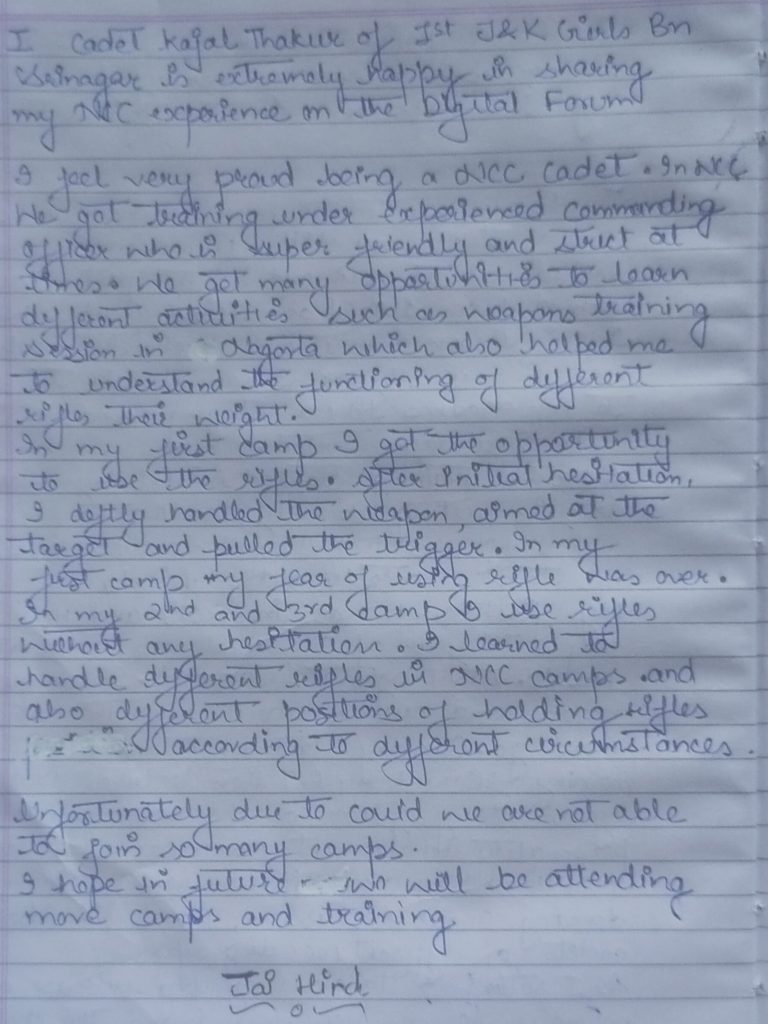 I Cadet Kajal Thakur of 1st J&K Girls Bn
Srinagar is extremely happy in sharing
my NCC experience on the Digital Forum
I feel very proud being a NCC cadet. In NCC
We got training under experienced commanding
officer who is super friendly and strict at
times. We got many opportunities to learn
different activities such as weapons training
session in Nagrota which also helped me
to understand the functioning of different
rifles their weight.
In my first camp I got the opportunity
to use the rifles. After initial hesitation,
I deftly handled the weapon, aimed at the
target and pulled the trigger. In my
first camp my fear of using rifle was over.
In my 2nd and 3rd camp I use rifles
without any hesitation. I learned to
handle different rifles in NCC camps and
also different positions of holding rifles
according to different circumstances.
Unfortunately due to could we are not able
to join so many camps.
I hope in future we will be attending
more camps and training
Jai Hind